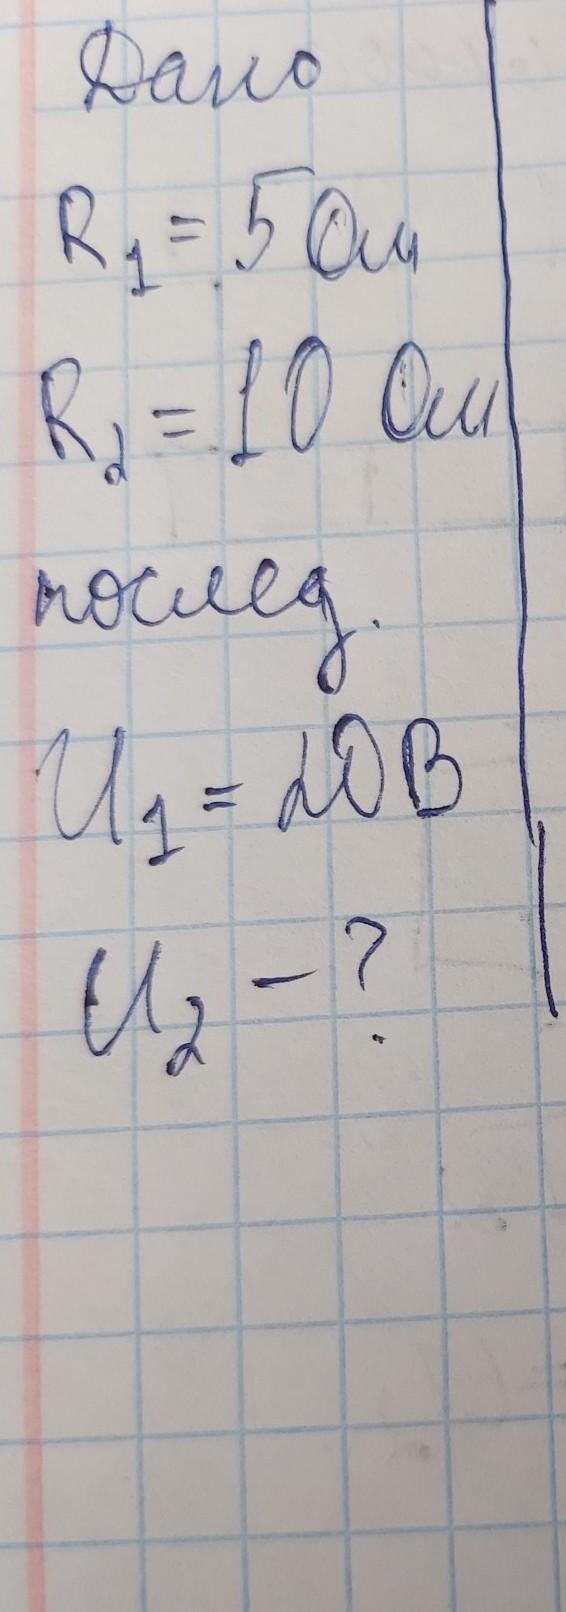 Дано
R₁ = 5 Ом
R₂ = 10 Ом
послед.
U₁ = 20 В
U₂ - ?